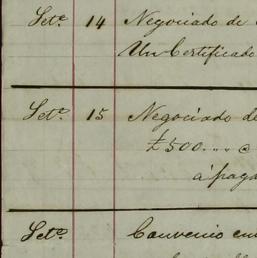 Set.e 14 Negociado de
Un Certificado
Set.e 15 Negociado de
£500 .... @
á paga
Set.e Convenio en